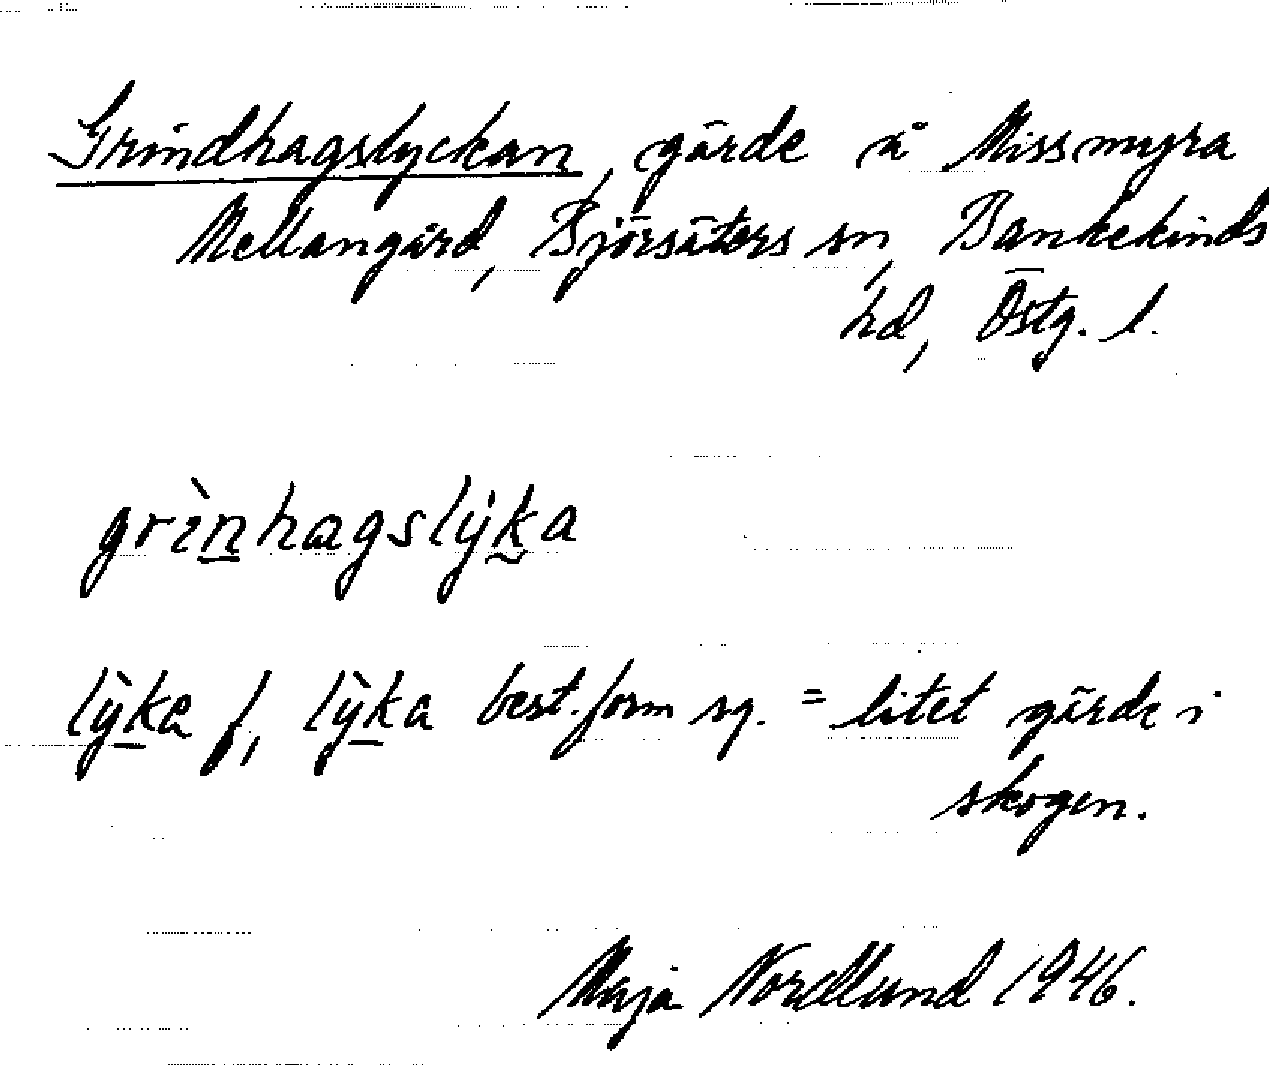 Grindhagslyckan, gärde å Missmyra
Mellangård, Björsäters sn, Bankekinds
hd, Östg. l.
grìn̲hagslẏk̰a
lỳk̲a f, lỳk̲a best. form sg. = litet gärde i
skogen.
Maja Nordlund 1946.